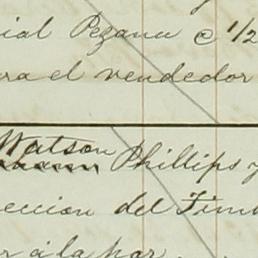 ial Pezana @ 1/2
ra el vendedor
Watson
Phillips y
eccion del Timb
r á la par